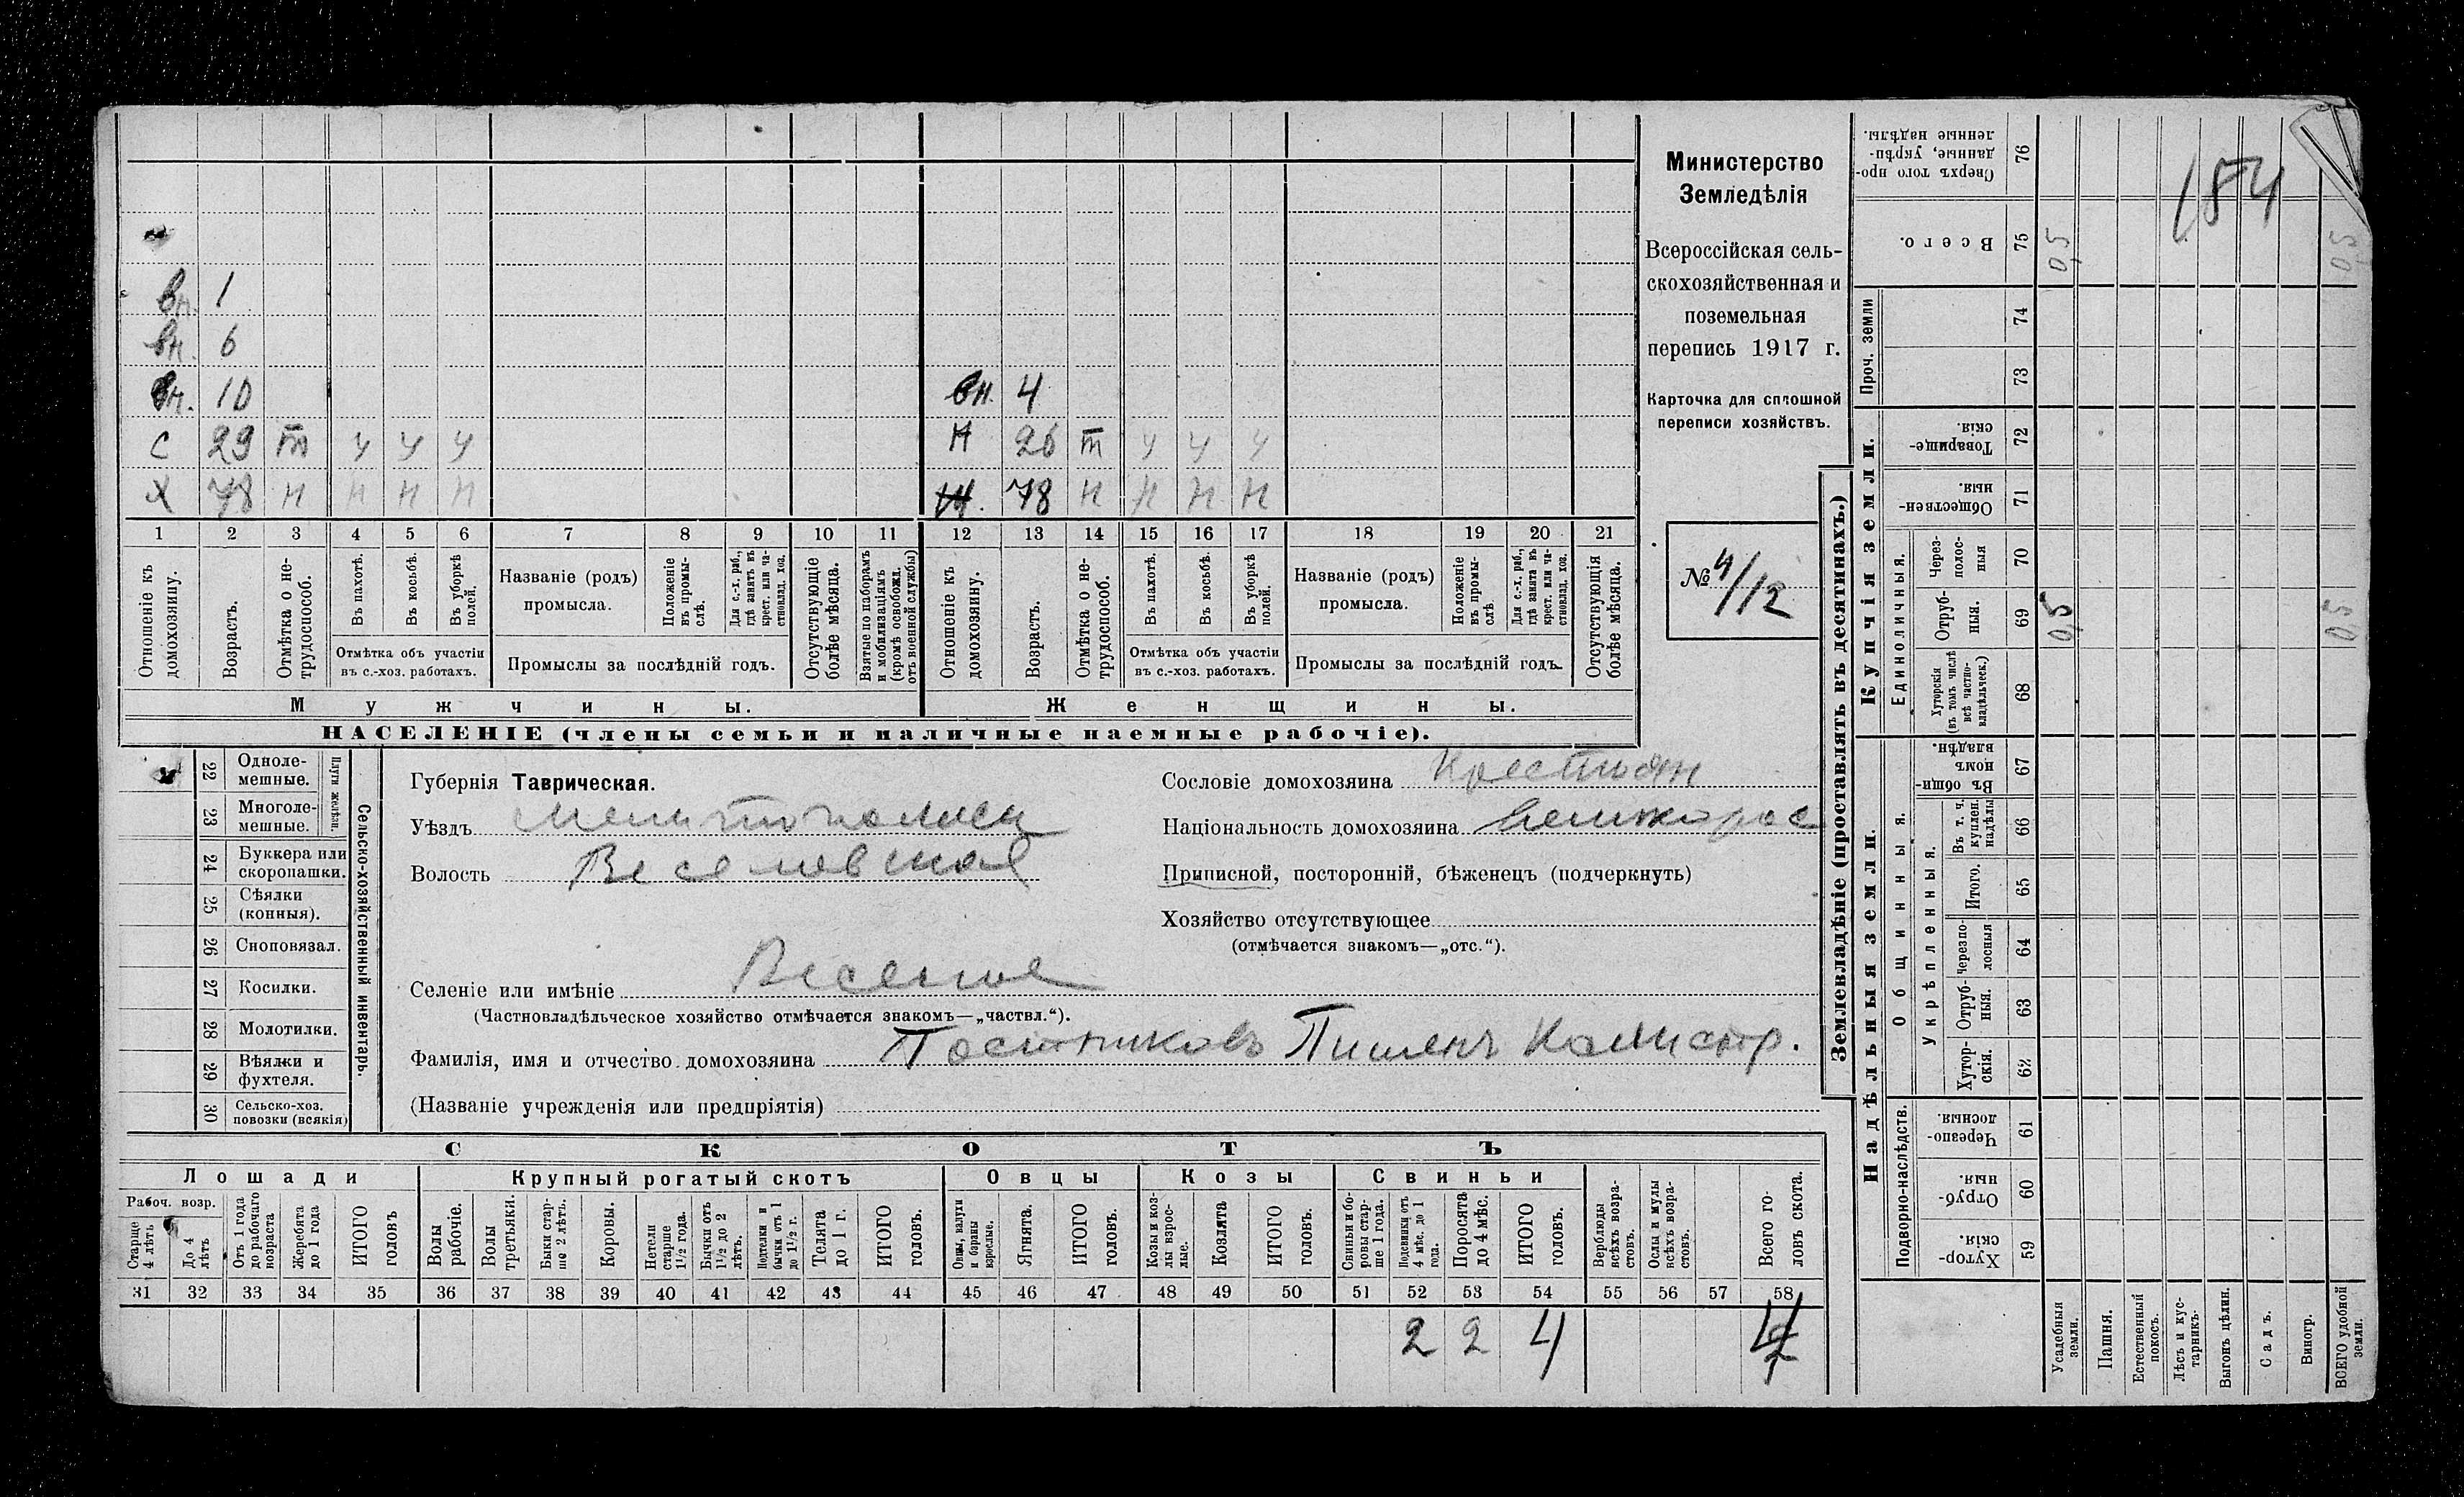 вн. 1
вн. 6
вн. 10 вн. 4
С 29 т у у у Н 26 т у у у
Х 78 н н н н Ж. 78 н н н н
1 2 3 4 5 6 7 8 9 10 11 12 13 14 15 16 17 18 19 20 21
Отношеніе къ домохозяину.
Возрастъ.
Отмѣтка о не-трудоспособ.
Въ пахотѣ.
Въ косьбѣ.
Въ уборкѣ полей.
Отмѣтка объ участіи
въ с.-хоз. работахъ.
Названіе (родъ)
промысла.
Положеніе въ промы-слѣ.
Для с.-х. раб., гдѣ занятъ въ крест. или ча-стновлад. хоз.
Промыслы за послѣдній годъ.
Отсутствующіе болѣе мѣсяца.
Взятые по наборамъ и мобилизаціямъ (кромѣ освобожд. отъ военной службы)
Отношеніе къ домохозяину.
Возрастъ.
Отмѣтка о не-трудоспособ.
Въ пахотѣ.
Въ косьбѣ.
Въ уборкѣ полей.
Отмѣтка объ участіи
въ с.-хоз. работахъ.
Названіе (родъ)
промысла.
Положеніе въ промы-слѣ
Для с.-х. раб., гдѣ занята въ крест. или ча-стновлад. хоз.
Промыслы за послѣдній годъ.
Отсутствующія болѣе мѣсяца.
Мужчины. Женщины.
НАСЕЛЕНІЕ (члены семьи и наличные наемные рабочіе).
Министерство
Земледѣлія
Всероссійская сель-
скохозяйственная и
поземельная
перепись 1917 г.
Карточка для сплошной
переписи хозяйствъ.
№ 4/12
22 Одноле-мешные.
23 Многоле-мешные.
Плуги желѣзн.
24 Буккера или скоропашки.
25 Сѣялки (конныя).
26 Сноповязал.
27 Косилки.
28 Молотилки.
29 Вѣялки и фухтеля.
30 Сельско-хоз. повозки (всякія)
Сельско-хозяйственный инвентарь.
Губернія Таврическая.
Уѣздъ Мелитопольск
Волость Веселовская
Селеніе или имѣніе Веселое
(Частновладѣльческое хозяйство отмѣчается знакомъ—„частвл.“).
Фамилія, имя и отчество домохозяина Постниковъ Пименъ Калистр.
(Названіе учрежденія или предпріятія)
Сословіе домохозяина Крестьян
Національность домохозяина великорос
Приписной, посторонній, бѣженецъ (подчеркнуть)
Хозяйство отсутствующее
(отмѣчается знакомъ—„отс.“).
СКОТЪ
Лошади Крупный рогатый скотъ Овцы Козы Свиньи
Рабоч. возр.
Старше 4 лѣтъ
До 4 лѣтъ
Отъ 1 года до рабочаго возраста
Жеребята до 1 года
ИТОГО головъ
Волы рабочіе.
Волы третьяки.
Быки стар-ше 2 лѣтъ.
Коровы.
Нетели старше 1½ года.
Бычки отъ 1½ до 2 лѣтъ.
Подтелки и бычки отъ 1 до 1½ г.
Телята до 1 г.
ИТОГО головъ.
Овцы, валухи и бараны взрослые.
Ягнята.
ИТОГО головъ.
Козы и коз-лы взрос-лые.
Козлята
ИТОГО головъ.
Свиньи и бо-ровы стар-ше 1 года.
Подсвинки отъ 4 мѣс. до 1 года.
Поросята до 4 мѣс.
ИТОГО головъ.
Верблюды всѣхъ возра-стовъ.
Ослы и мулы всѣхъ возра-стовъ.
Всего го-ловъ скота.
31 32 33 34 35 36 37 38 39 40 41 42 43 44 45 46 47 48 49 50 51 52 53 54 55 56 57 58
2 2 4 4
Землевладѣніе (проставлять въ десятинахъ.)
Сверхъ того про-данные, укрѣп-ленные надѣлы. 76
Всего. 75 0,5 0,5
184
Проч. земли
74
73
Купчія земли.
Товарище-скія. 72
Обществен-ныя. 71
Единоличныя.
Через-полос-ныя 70
Отруб-ныя. 69 0,5 0,5
Хуторскія (въ томъ числѣ всѣ частно-владѣльческ.) 68
Надѣльныя земли.
Общинныя.
Въ общин-номъ владѣн. 67
Укрѣпленныя.
Въ т. ч. куплен. надѣлы 66
Итого. 65
Черезпо-лосныя 64
Отруб-ныя. 63
Хутор-скія. 62
Подворно-наслѣдств.
Черезпо-лосныя. 61
Отруб-ныя 60
Хутор-скія. 59
Усадебныя земли.
Пашня.
Естественный покосъ.
Лѣсъ и кус-тарникъ.
Выгонъ цѣлин.
Садъ.
Виногр.
ВСЕГО удобной земли.